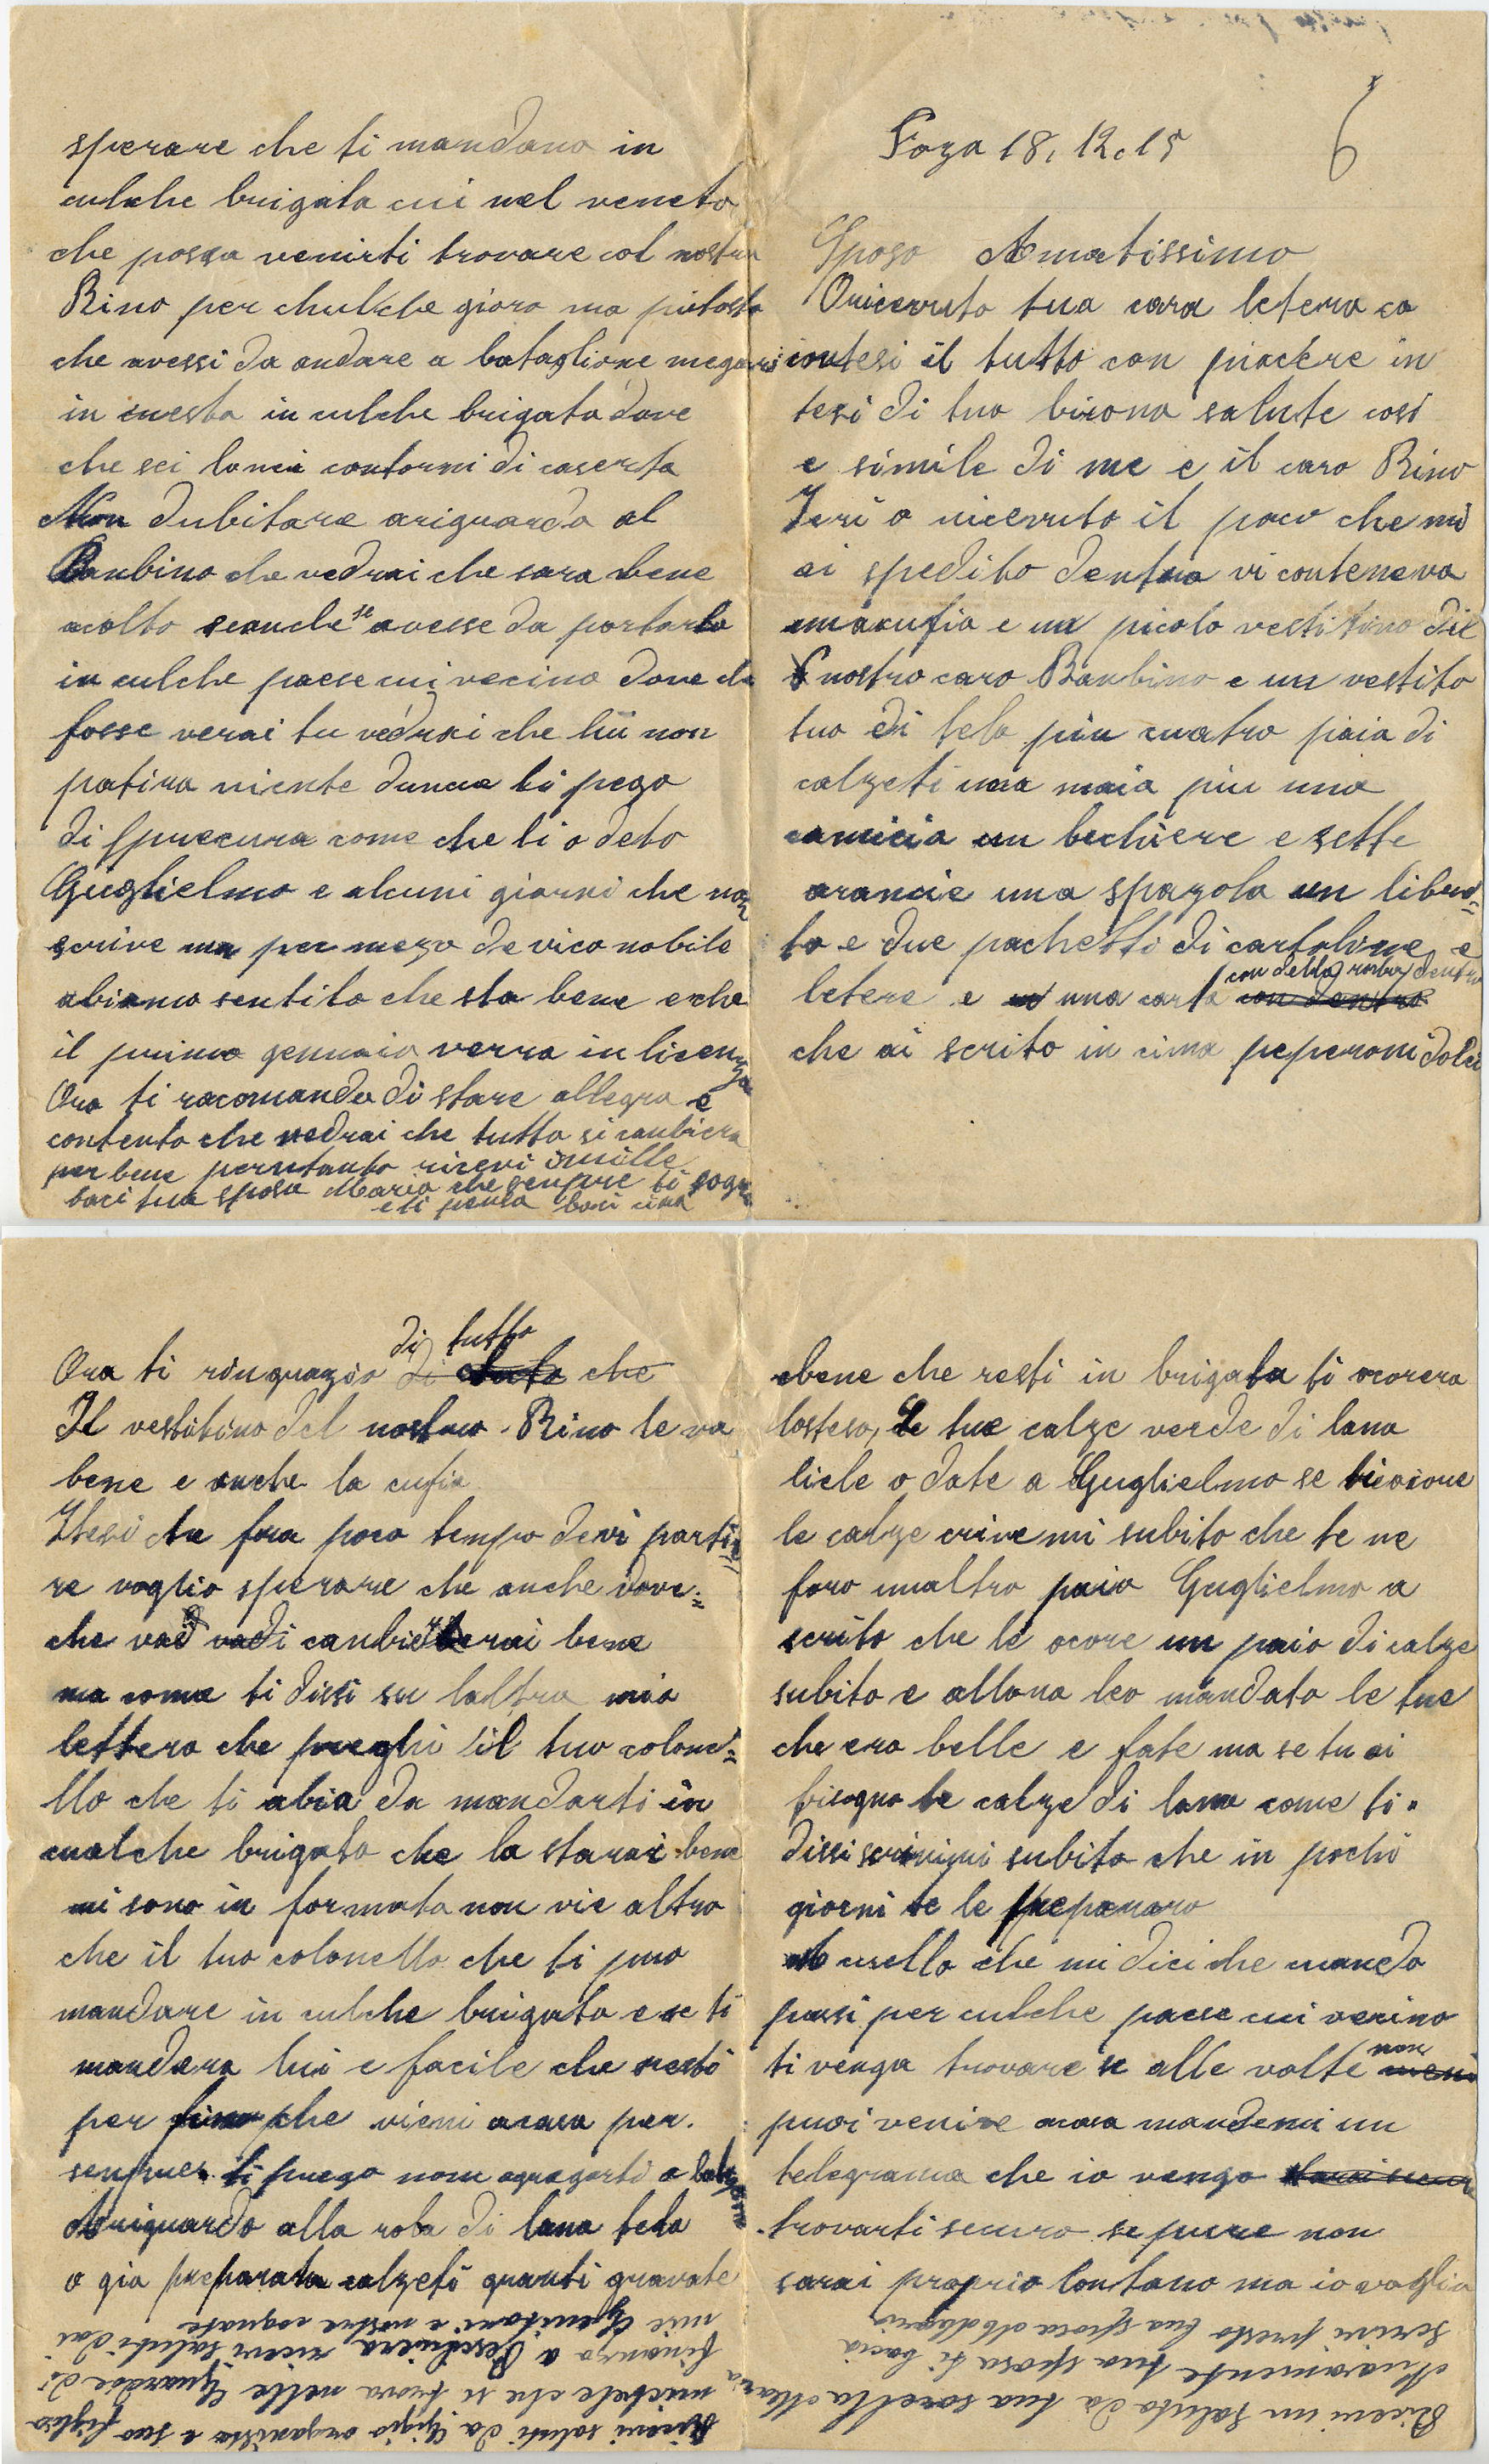 6
Foza 18, 12. 15
Sposo Amatissimo
O ricevuto tua cara letera co
contesi il tutto con piacere in
tesi di tua buona salute cosi
e simile di me e il caro Rino
Ieri o ricevuto il paco che mi
ai spedito dentro vi conteneva
una cufia e un picolo vestitino del
nostro caro Banbino e un vestito
tuo di tela piu cuatro paia di
calzeti una maia piu una
camicia un bichiere e sette
arancie una spazola un libret=
to e due pachetti di cartoline e
letere e una carta con della roba dentro
che ai scrito in cima peperoni dolci
Ora ti ringrazio di tutto che
Il vestitino del nostro Rino le va
bene e anche la cufia
Itesi che fra poco tempo devi parti=
re voglio sperare che anche dove=
che vadi canbierai bene
ma come ti dissi su laltra mia
lettera che preghi il tuo colone=
llo che ti abia da mandarti in
cualche brigata che la starai bene
mi sono in formata non vie altro
che il tuo colonello che ti puo
mandare in culche brigata e se ti
mandera lui e facile che resti
per fino che vieni acasa per
senpre. ti prego non agregarti a bataglione
Ariguardo alla roba di lana tela
o gia preparata calzeti guanti gravate
ebene che resti in brigata ti ocorera
lostesa, Le tue calze verde di lana
liele o date a Guglielmo se ti ocore
le calze crivemi subito che te ne
faro unaltro paio Guglielmo a
scrito che le ocore un paio di calze
subito e allora leo mandato le tue
che era belle e fate ma se tu ai
bisogno le calze di lana come ti
dissi scrivimi subito che in pochi
giorni te le preparero
A cuello che mi dici che cuando
passi per culche paese cui vecino
ti venga trovare se alle volte non
puoi venire acasa mandemi un
telegrama che io vengo
trovarti securo se pure non
sarai proprio lontano ma io voglio
sperare che ti mandano in
culche brigata cui nel veneto
che possa venirti trovare col nostro
Rino per chulche gioro ma piutosto
che avessi da andare a bataglione megio
in cuesta in culche brigata dove
che sei lonci contorni di caserta
Non dubitare ariguardo al
Banbino che vedrai che sara bene
acolto seanche se avesse da portarlo
in culche paese cui vecino dove che
fosse verai tu vedrai che lui non
patira niente duncue ti prego
di sprecura come che ti o deto
Guglielmo e alcuni giorni che non
scrive ma per mezo de vico nobile
abiamo sentito che sta bene e che
il primo gennaio verra in licenza
Ora ti racomando di stare allegro e
contento che vedrai che tutto si canbiera
per bene pertanto ricevi i mille
baci tua sposa Maria che senpre ti sogna
e ti pensa baci
Ricevi un saluto da tua sorella Maria
Nuovamente tua sposa ti bacia
scrivi presto tua sposa
Ricevi saluti da Gigio organista e suo figlio
michele che si trova nelle Guardie di
finanza a Peschiera ricevi saluti dai
mie Genitori e nostre cognate